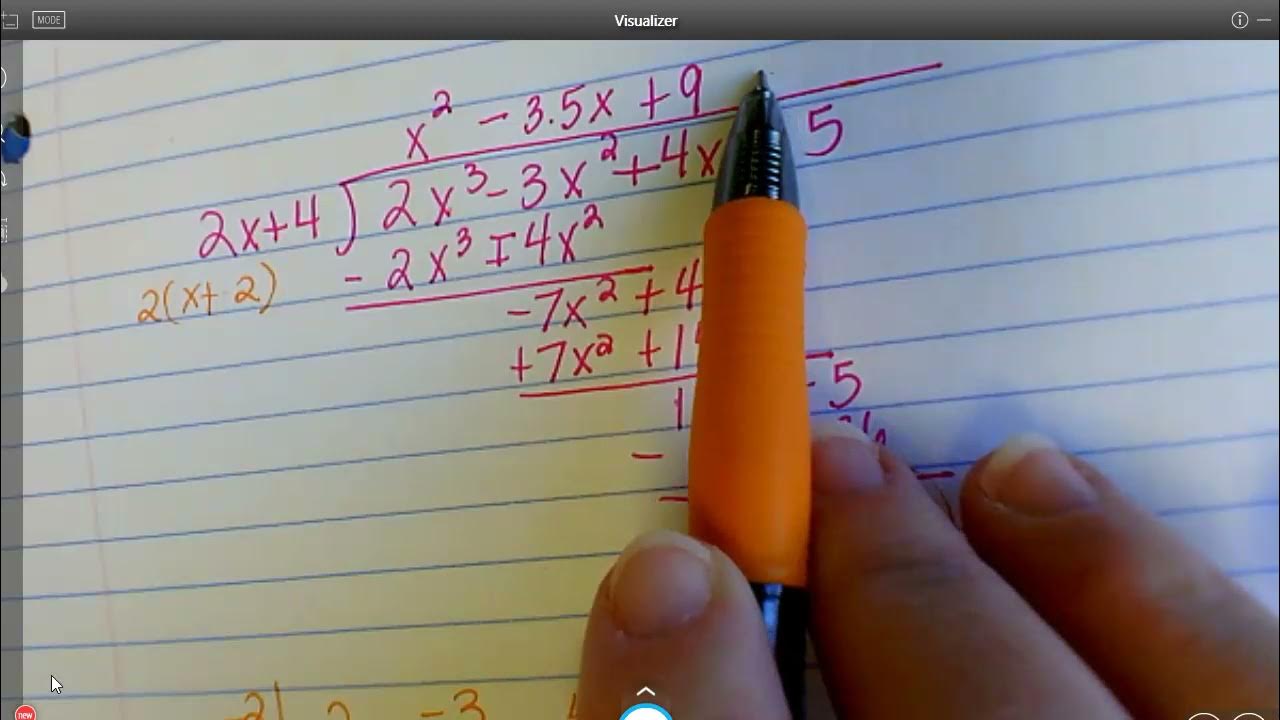 MODE
Visualizer
x² - 3.5x + 9
2x+4 ) 2x³ - 3x² + 4x 5
- 2x³ ± 4x²
2(x+ 2)
-7x² + 4
+7x² + 1 - 5
1
-
-2| 2 -3
new